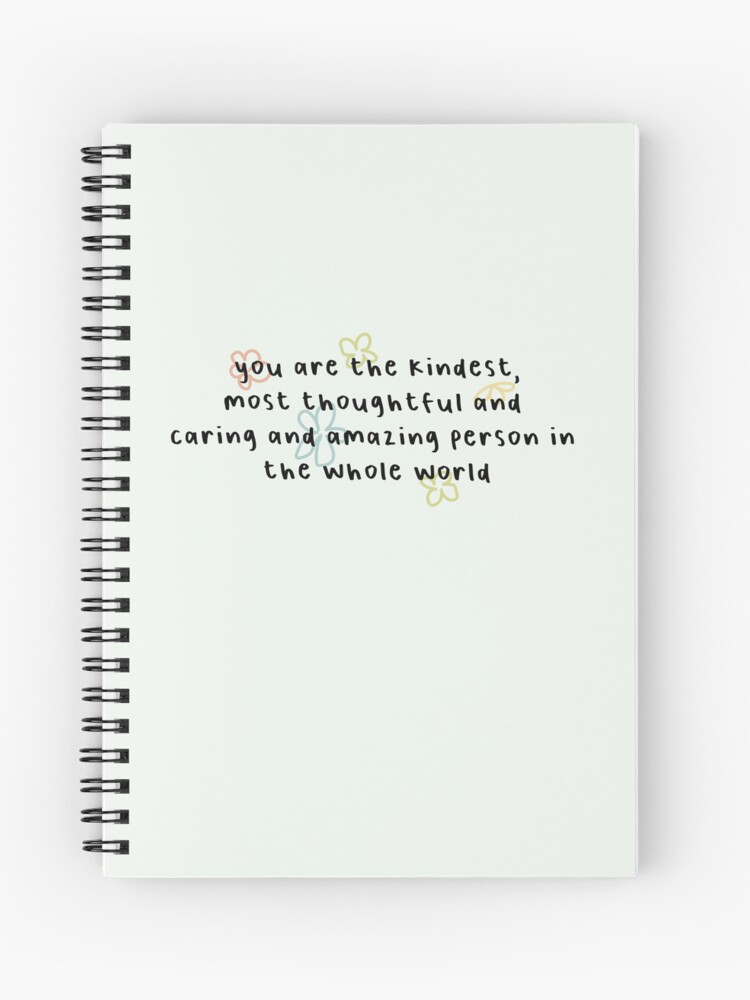 you are the kindest,
most thoughtful and
caring and amazing person in
the whole world